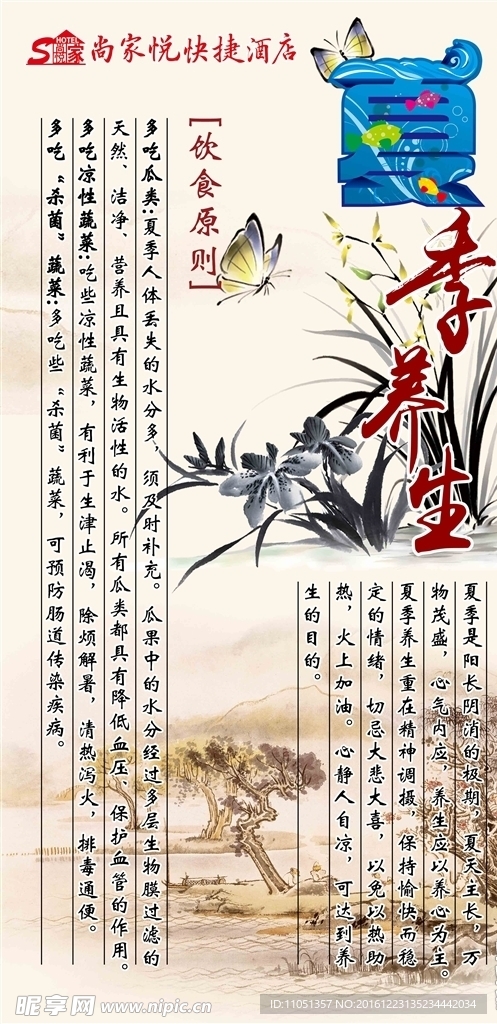 HOTEL
S尚家 尚家悦快捷酒店
夏
季养生
夏季是阳长阴消的极期，夏天主长，万
物茂盛，心气内应，养生应以养心为主。
夏季养生重在精神调摄，保持愉快而稳
定的情绪，切忌大悲大喜，以免以热助
热，火上加油。心静人自凉，可达到养
生的目的。
[饮食原则]
多吃瓜类:夏季人体丢失的水分多，须及时补充。瓜果中的水分经过多层生物膜过滤的
天然、洁净、营养且具有生物活性的水。所有瓜类都具有降低血压、保护血管的作用。
多吃凉性蔬菜:吃些凉性蔬菜，有利于生津止渴，除烦解暑，清热泻火，排毒通便。
多吃“杀菌”蔬菜:多吃些“杀菌”蔬菜，可预防肠道传染疾病。
昵享网 www.nipic.cn
ID:11051357 NO:20161223135234442034